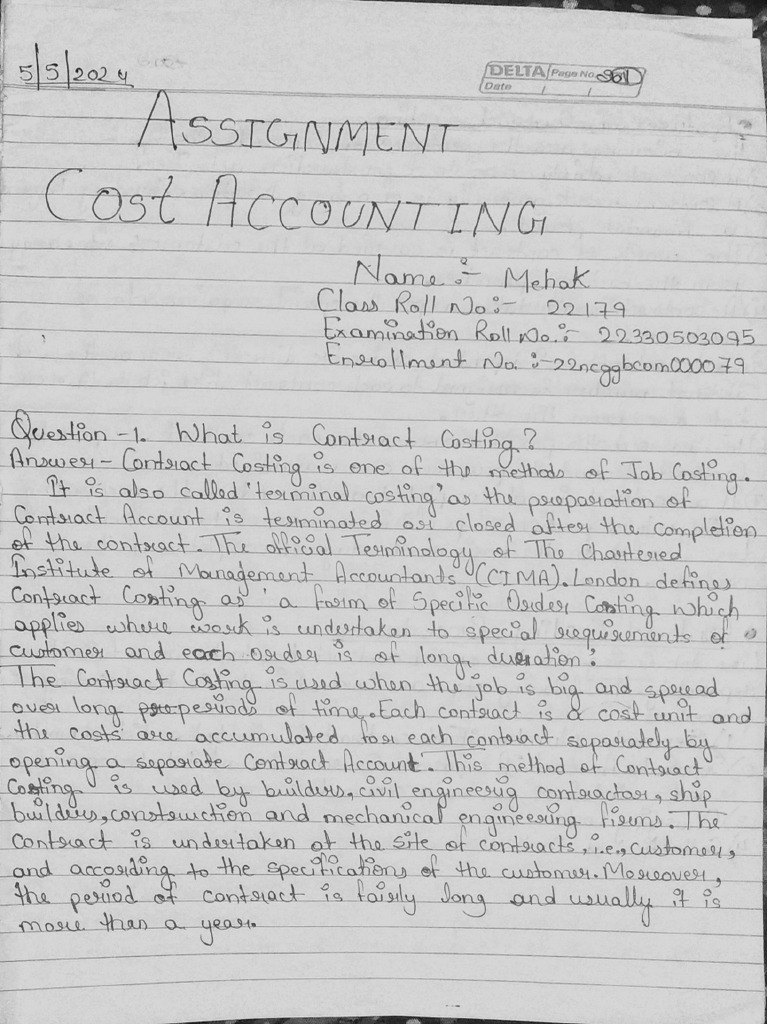 5/5/2024
DELTA Page No.
Date / /
ASSIGNMENT
Cost ACCOUNTING
Name :- Mehak
Class Roll No :- 22179
Examination Roll No. :- 22330503095
Enrollment No. :- 22ncggbcom000079
Question -1. What is Contract Costing?
Answer - Contract Costing is one of the methods of Job Costing.
It is also called 'terminal costing' as the preparation of
Contract Account is terminated or closed after the completion
of the contract. The official Terminology of The Chartered
Institute of Management Accountants (CIMA). London defines
Contract Costing as 'a form of Specific Order Costing which
applies where work is undertaken to special requirements of
customer and each order is of long duration.'
The Contract Costing is used when the job is big and spread
over long periods of time. Each contract is a cost unit and
the costs are accumulated for each contract separately by
opening a separate Contract Account. This method of Contract
Costing is used by builders, civil engineerig contractor, ship
builders, construction and mechanical engineering firms. The
contract is undertaken at the site of contracts, i.e., customers,
and according to the specifications of the customer. Moreover,
the period of contract is fairly long and usually it is
more than a year.